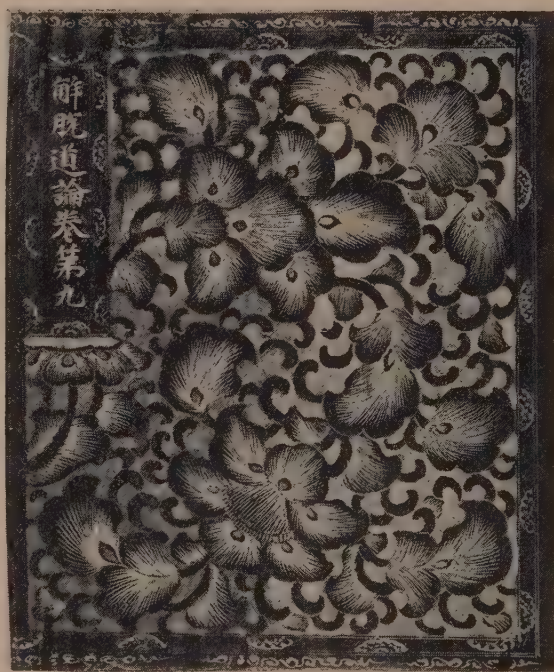 解脱道論卷第九